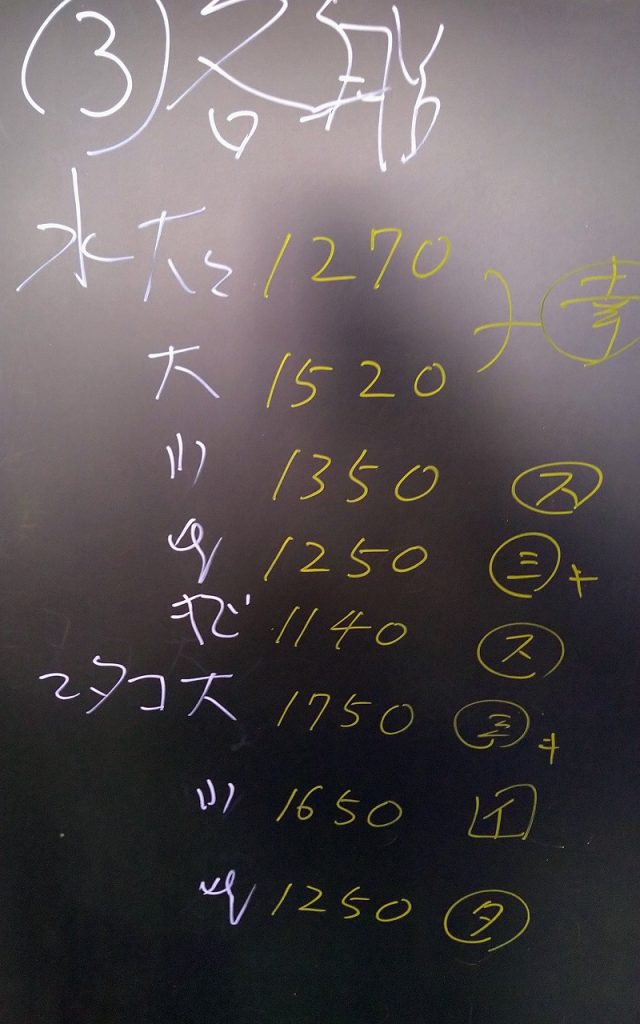 ③各船
水大 1270
大 1520
小 1350 ㋜
中 1250 ㊂キ
1140 ㋜
マタコ大 1750 キ
小 1650 イ
中 1250 ㋟